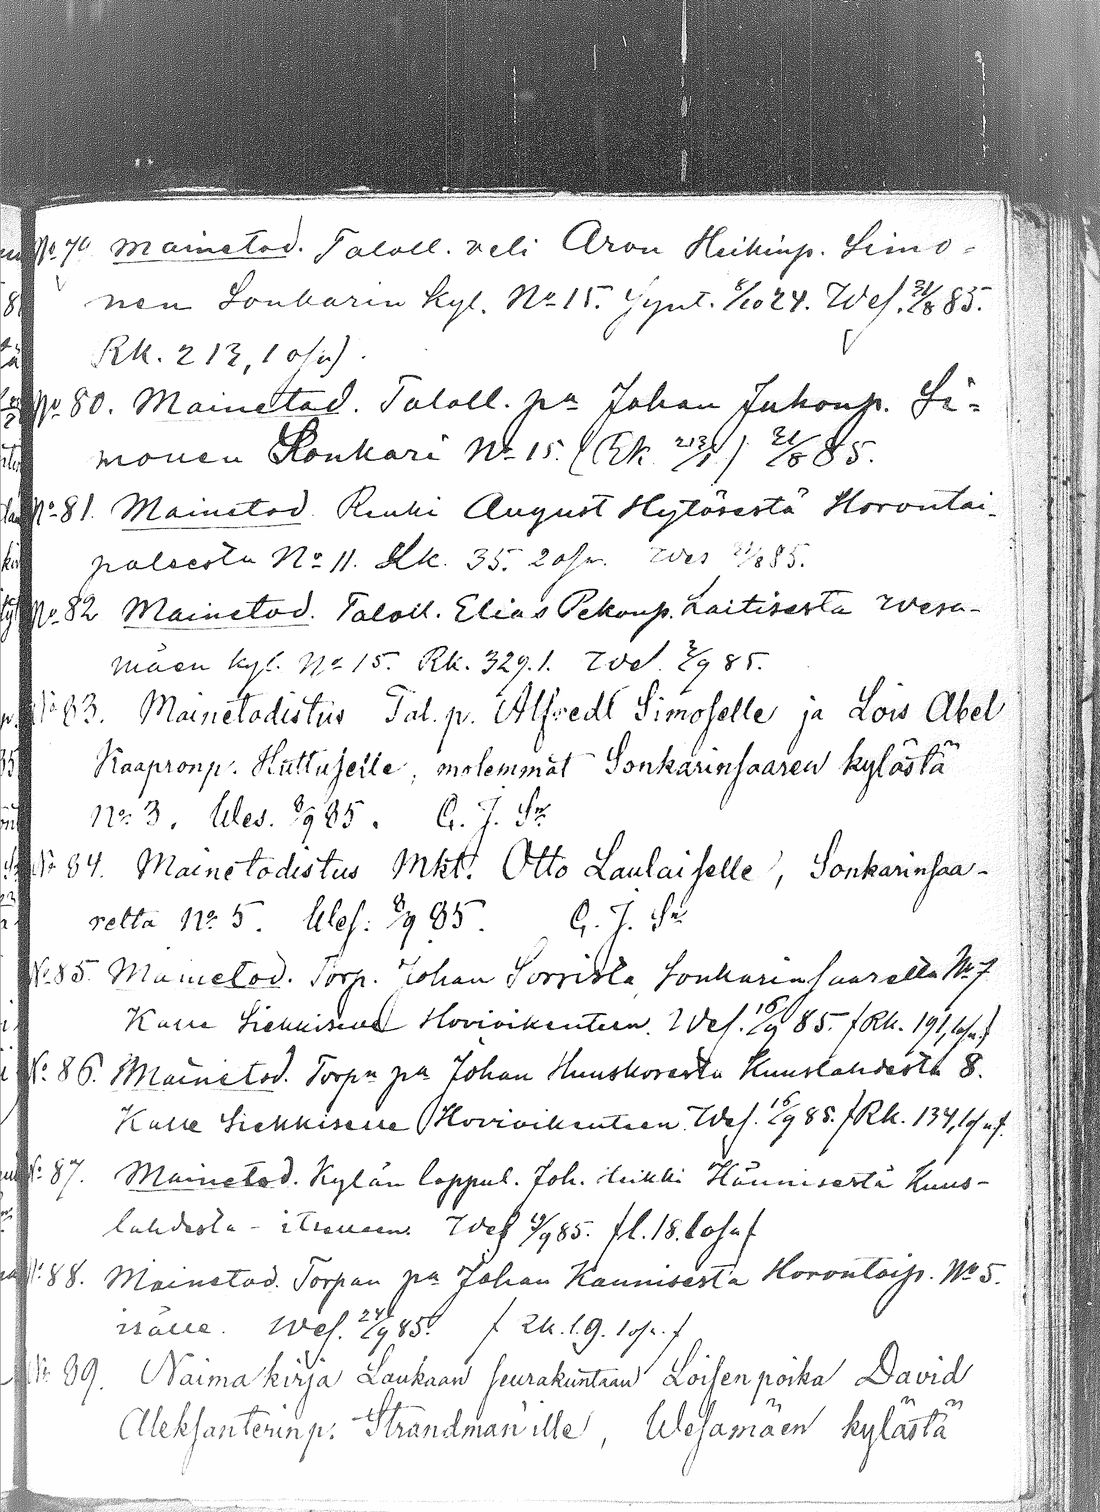 No 79 Mainetod. Taloll. veli Aron Heikinp. Simo-
nen Sonkarin kyl. No 15. Synt. 6/10 24. Wes. 31/8 85.
Rk. 213, 1 osa).
No 80. Mainetod. Taloll. pa Johan Juhonp. Si=
monen Sonkari No 15. (Rk. 213/1) 31/8 85.
No 81. Mainetod. Renki August Hytösestä Horontai-
paleesta No 11. Rk. 35. 2 osa. Wes 31/8 85.
No 82 Mainetod. Taloll. Elias Pekonp. Laitisesta Wesa-
mäen kyl. No 15. Rk. 329. 1. Wes. 2/9 85.
No 83. Mainetodistus Tal. p. Alfredl Simoselle ja Lois Abel
Kaapronp. Huttuselle, molemmat Sonkarinsaaren kylästä
No 3. Wes. 8/9 85. G. J. Sn
No 84. Mainetodistus Mkt. Otto Laulaiselle, Sonkarinsaa-
relta No 5. Wes: 8/9 85. G. J. Sn
No 85. Mainetod. Torp. Johan Sorsista Sonkarinsaarelta No 7
Kalle Siekkiselle Hovioikeuteen. Wes. 16/9 85. (Rk. 191, 1 osa.)
No 86. Mainetod. Torpn pa Johan Huuskosesta Kuuslahdesta 8.
Kalle Siekkiselle Hovioikeuteen. Wes. 16/9 85. (Rk. 134, 1 osa).
No 87. Mainetod. Kylän loppul. Joh. Heikki Hännisestä Kuus-
lahdesta - itselleen. Wes 19/9 85. (l. 18. 1 osa)
No 88. Mainetod. Torpan pa Johan Kaunisesta Horontaip. No 5.
isälle. Wes. 24/9 85. ( Rk. l. 9. 1 osa. )
No 89. Naimakirja Laukaan seurakuntaan Loisenpoika David
Aleksanterinp: Strandman'ille, Wesamäen kylästä